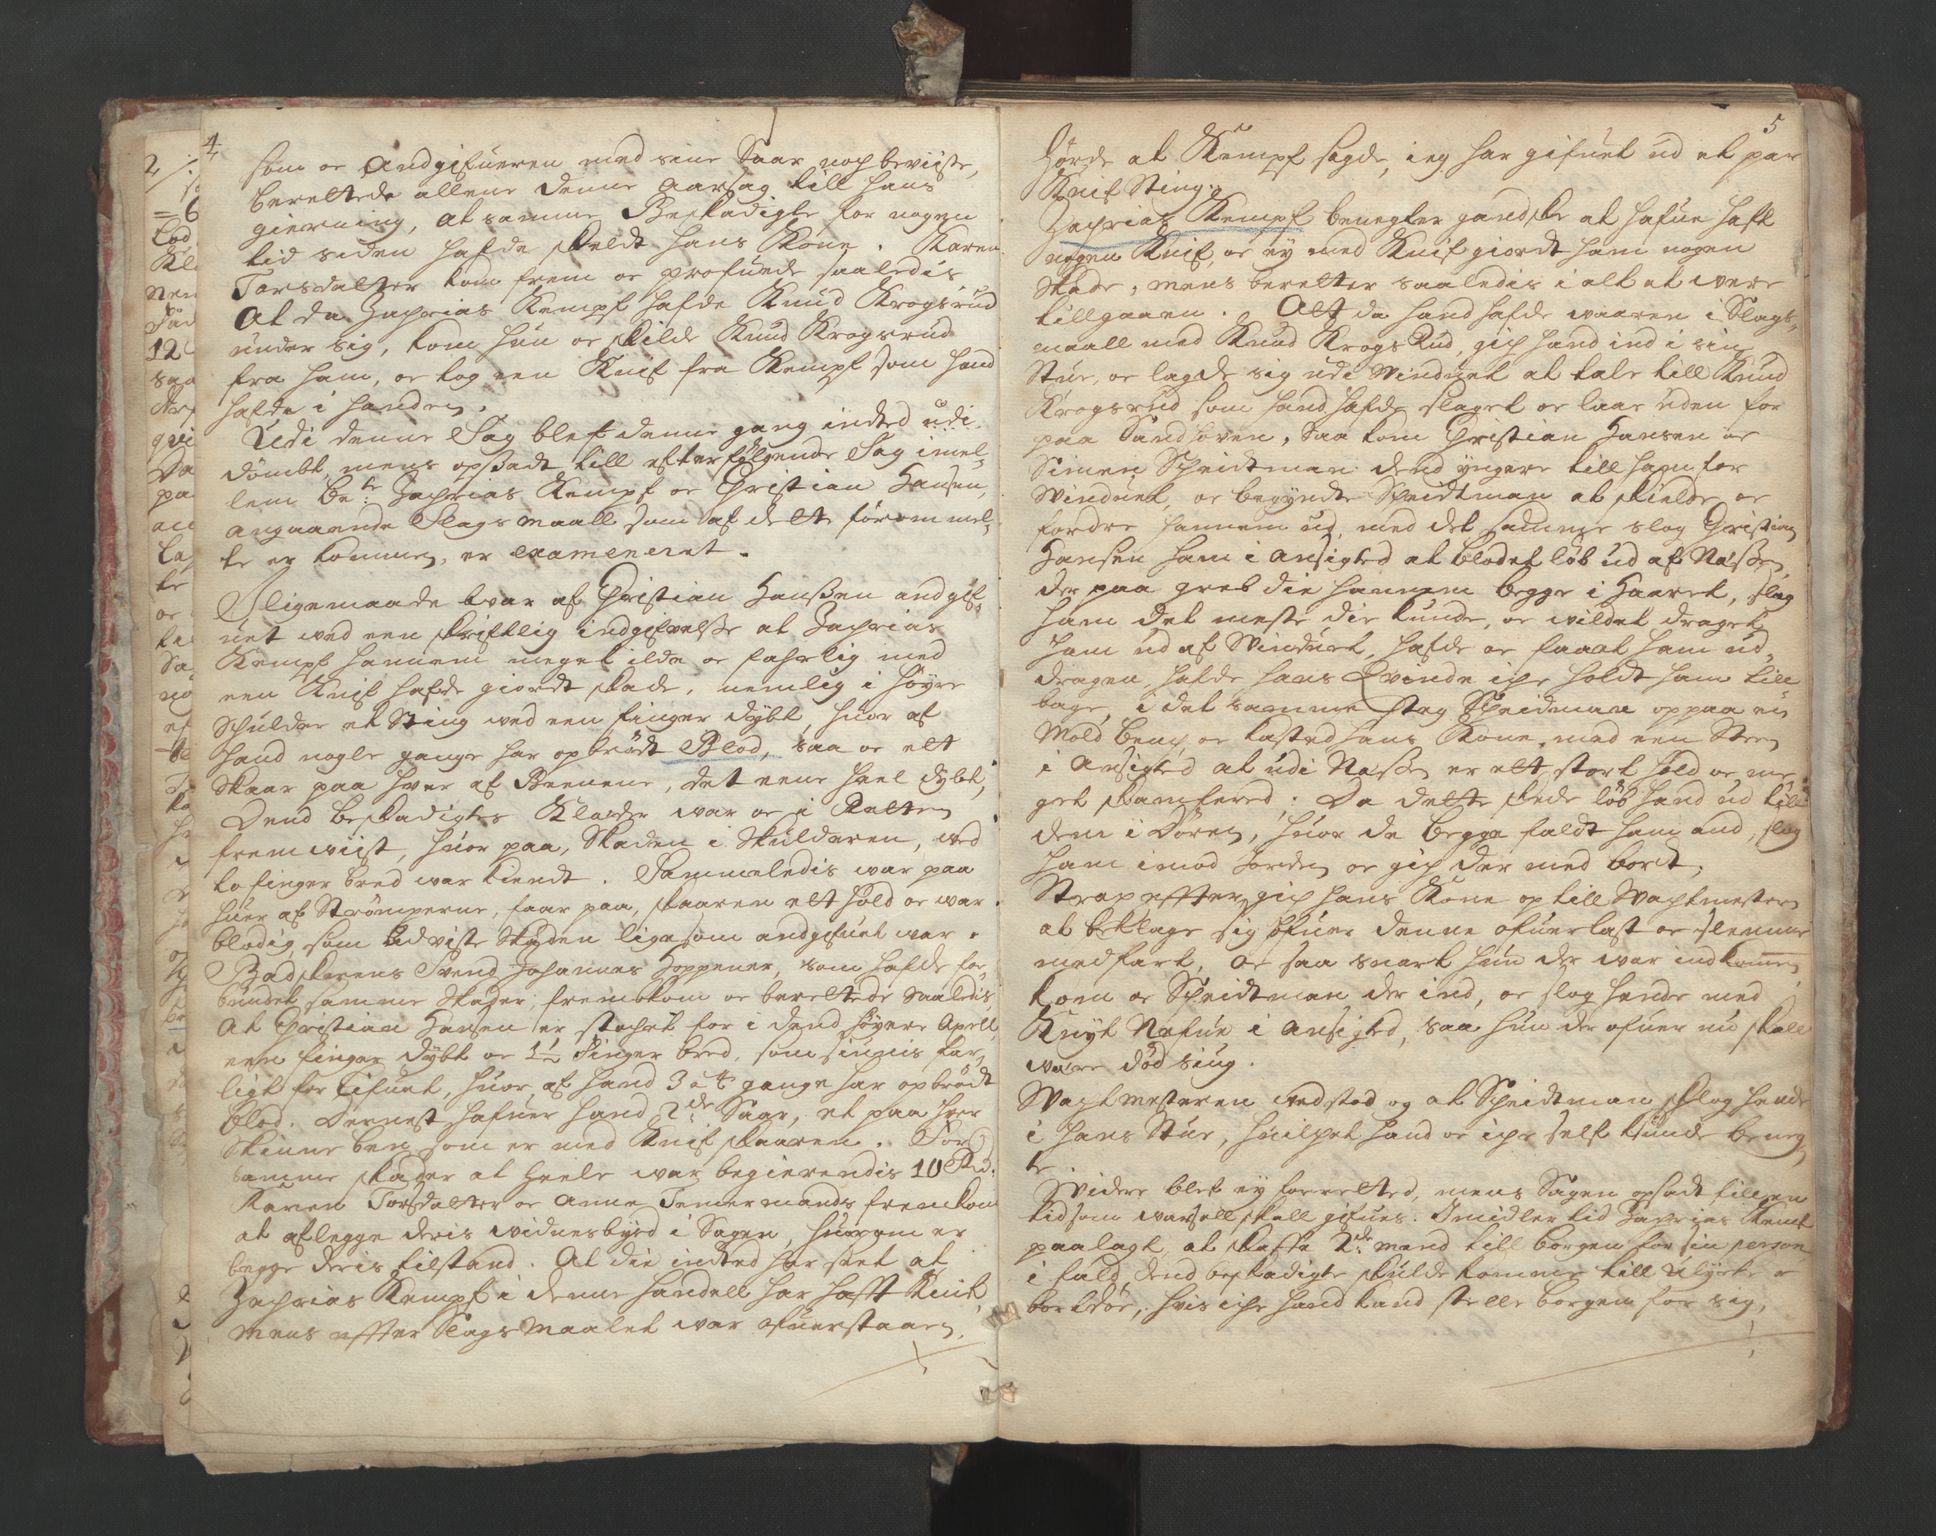 4
som oc Andgifueren med sine Saar noch beviiste,
berettede allene denne Aarsag till hans
gierning, at samme Beskadigte for nogen
tid siden hafde skeldt hans Kone. Karen
Torsdatter kom frem oc profuede saaledis
At da Zachrias Kempf hafde Knud Krogsrud
under sig, kom hun oc skilde Knud Krogsrud
fra ham, oc tog een Knif fra Kempf som hand
hafde i handen.
Udi denne Sag blef denne gang indted udi
dømbt, mens opsadt till efterfølgende Sag imel-
lem be.te Zachrias Kempf oc Christian Hansen,
angaaende Slagsmaall som af dette forommel-
te er kommen, er examineret.
Sligemaade war af Christian Hanssen andgif-
uet wed een skriftlig indgifvelsse at Zachrias
Kempf hannem meget ilde oc fahrlig med
een Knif hafde giordt skade, nemlig i høyre
Schulder et Sting wed een finger dybt, huor af
hand nogle gange har opbrødt Blod, saa oc ett
Skaar paa hver af Benene, det eene heel dybt,
Dend beskadigtes Klæder war oc i Retten
fremwiist, huor paa, Skaden i Skulderen, wed
to finger bred war kiendt. Sammeledis war paa
huer af Strømperne, faar paa, skaaren ett hold oc war
blodig som udviste Skaden ligesom andgifuet war.
Badskerens Svend Johannes Hoppener, som hafde for-
bundet samme Skader, fremkom oc berettede saaledis,
At Christian Hansen er stochet for i dend høyere Apell
een finger dybt oc 1½ finger bred, som siunis far-
ligt for Lifuet, huor af hand 3 à 4 gange har opbrødt
blod. Dernest hafuer hand 2de Saar, et paa hver
Skinneben som er med Knif skaaren. For
samme skader at heele war begierendis 10 Rd.
Karen Torsdatter oc Anne Temermands fremkom
at aflegge deris widnesbyrd i Sagen, huorom er
begge deris tilstand. At die indted har seet at
Zachrias Kempf i denne handell har hafft Knif,
mens effter Slagsmaalet war ofuerstaaen,
5
hørde at Kempf sagde, ieg har gifuet ud et par
Knif Sting.
Zachrias Kempf benegter gandske at hafue hafft
nogen Knif, oc ey med Knif giordt ham nogen
skade, mens beretter saaledis i alt at were
tillgaaen. At da hand hafde waaren i Slags-
maall med Knud KrogsRud, gich hand ind i sin
Stue, oc lagde sig udi Winduet at tale till Knud
Krogsrud som hand hafde slaget oc laae uden for
paa Sandhoven, Saa kom Christian Hansen oc
Simen Scheidtman dend yngere till ham for
Winduet, oc begyndte Scheidtman at skielde oc
fordre hannem ud, med det samme slog Christian
Hansen ham i ansigted at blodet løb ud af Næssen,
der paa greb die hannem begge i Haaret, slog
ham det meste die kunde, oc wildet draget
ham ud af Winduet, hafde oc faaet ham ud,
dragen, hafde hans Qvinde iche holdt ham till
bage, i det samme steg Scheidman op paa een
Mold bench oc kasted hans Kone med een Steen
i Ansigted at udi Næssen er ett stort hold oc me-
get skamfered; Da dette skede løb hand ud till
dem i Døren, huor da begge faldt ham and, slog
ham imod Jorden oc gich der med bort,
Strax effter gich hans Kone op till Wachtmesteren
at beklage sig ofuer denne ofuerlast oc slemme
medfart, Oc saa snart hun der war indkommen
kom oc Scheidtman der ind, oc slog hende med
Knyt Nefue i Ansigted, saa hun der ofuer nu skall
were død siug.
Wachtmesteren wedstod og at Scheidtman slog hende
i hans Stue, huilchet hand oc iche self kunde beneg-
te.
Widere blef ey forretted, mens Sagen opsadt till een
tid som warsell skall gifues. Imidler tid Zachrias Kempf
paalagt, at skaffe 2de mand till borgen for sin person
i fald dend beskadigte skulde komme till ulycke oc
bortdøe, hvis iche hand kand stelle borgen for sig,